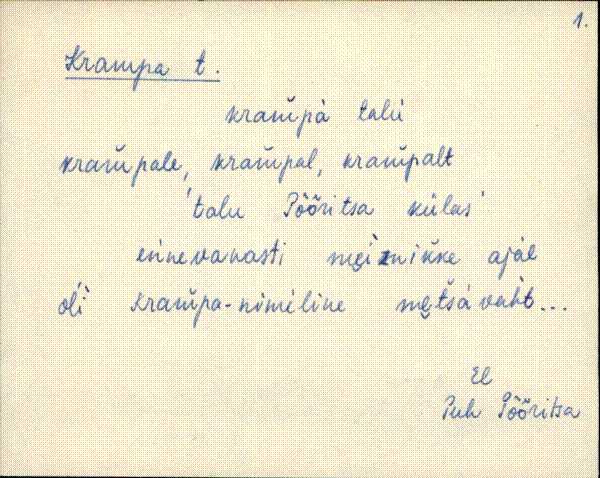 1.
Krampa t.
kram̆pà talù
kram̆pale, kram̆pal, kram̆palt
'talu Põõritsa külas'
ennevanasti męìznikke ajàl
oĺì kram̆pa-nimèline mętšàvaht...
El
Puh Põõritsa